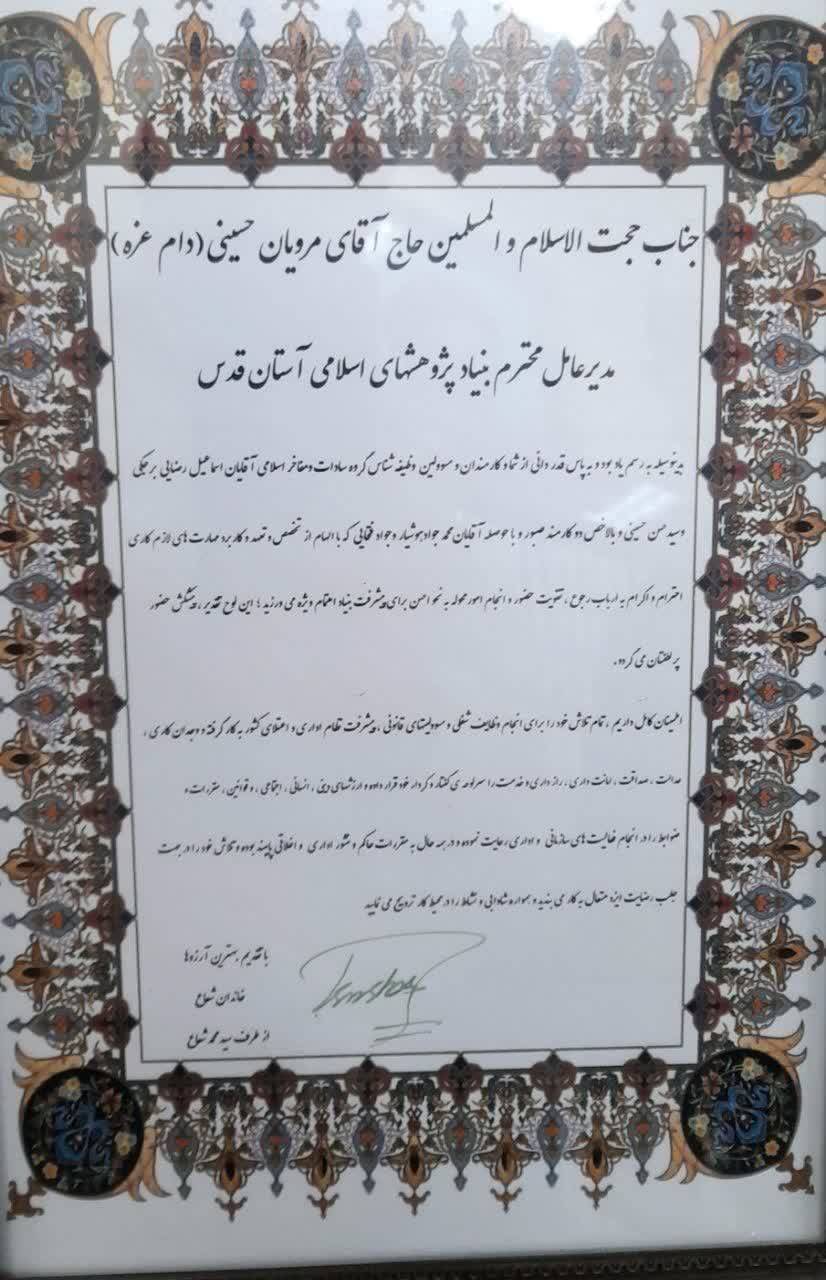 جناب حجت الاسلام و المسلمین حاج آقای مرویان حسینی (دام عزه)
مدیرعامل محترم بنیاد پژوهشهای اسلامی آستان قدس
بدینوسیله به رسم یاد بود و به پاس قدر دانی از شما و کارمندان و مسوولین وظیفه شناس گروه سادات و مفاخر اسلامی آقایان اسماعیل رضایی برجکی
وسید حسن حسینی و بالاخص دو کارمند صبور و با حوصله آقایان محمد جواد هوشیار وجواد فتحایی که با الهام از تخصص و تعهد و کاربرد مهارت های لازم کاری
احترام و اکرام به ارباب رجوع ، تقویت حضور و انجام امور محوله به نحو احسن برای پیشرفت بنیاد اهتمام ویژه می ورزید ؛ این لوح تقدیر ، پیشکش حضور
پر لطفتان می گردد.
اطمینان کامل داریم ، تمام تلاش خود را برای انجام وظایف شغلی و مسوولیتهای قانونی ، پیشرفت نظام اداری و اعتلای کشور به کار گرفته و وجدان کاری ،
عدالت ، صداقت ، امانت داری ، راز داری و خدمت را سرلوحه ی گفتار و کردار خود قرار داده و ارزشهای دینی ، انسانی ، اجتماعی ، و قوانین ، مقررات و
ضوابط را در انجام فعالیت های سازمانی و اداری رعایت نموده و در همه حال به مقررات حاکم و منشور اداری و اخلاقی پایبند بوده و تلاش خود را در جهت
جلب رضایت ایزد متعال به کار می بندید و همواره شادابی و نشاط را در محیط کار ترویج می نمایید
با تقدیم بهترین آرزوها
خاندان شعاع
از طرف سید محمد شعاع